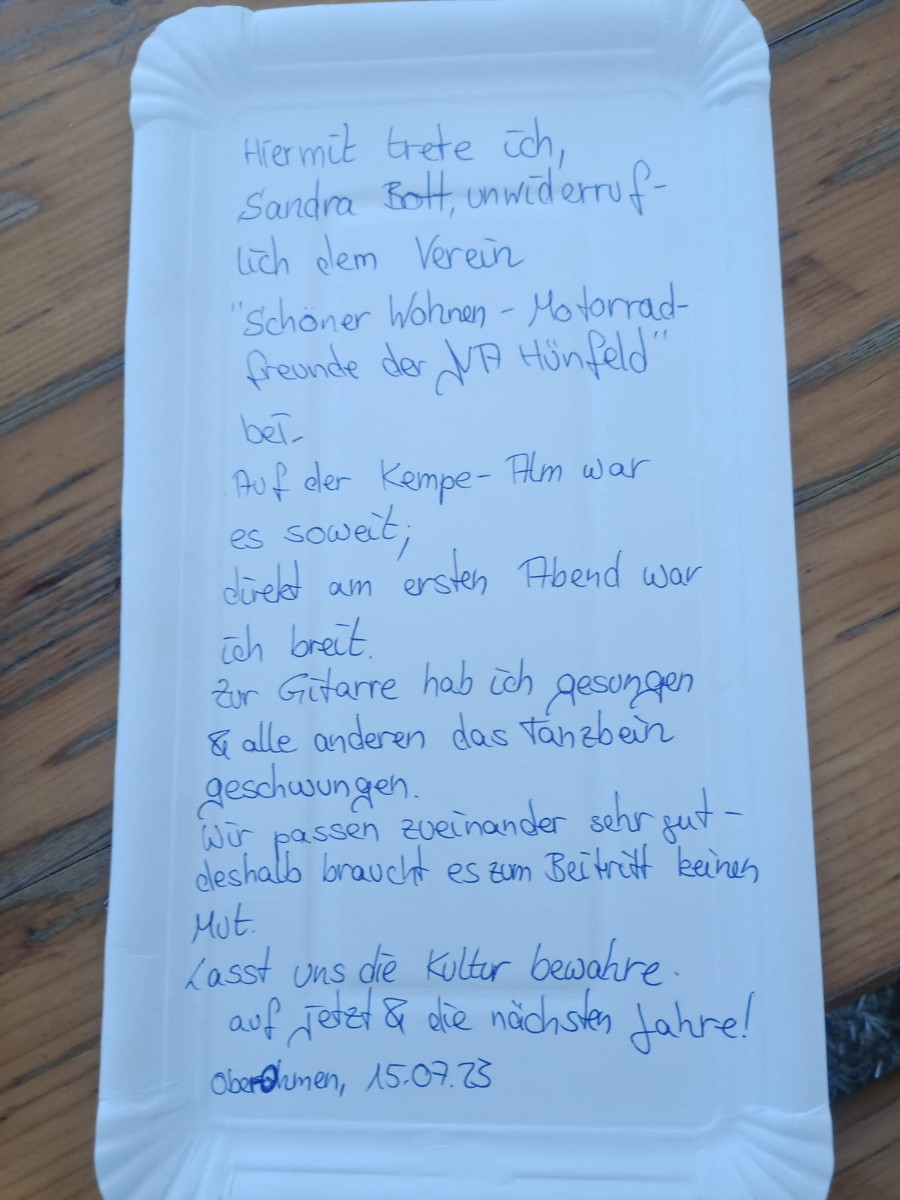 Hiermit trete ich,
Sandra Bott, unwiderruf-
lich dem Verein
"Schöner Wohnen - Motorrad-
freunde der JVA Hünfeld"
bei.
Auf der Kempe-Alm war
es soweit;
direkt am ersten Abend war
ich breit.
Zur Gitarre hab ich gesungen
& alle anderen das Tanzbein
geschwungen.
Wir passen zueinander sehr gut -
deshalb braucht es zum Beitritt keinen
Mut.
Lasst uns die Kultur bewahre.
auf jetzt & die nächsten Jahre!
Oberohmen, 15.07.23